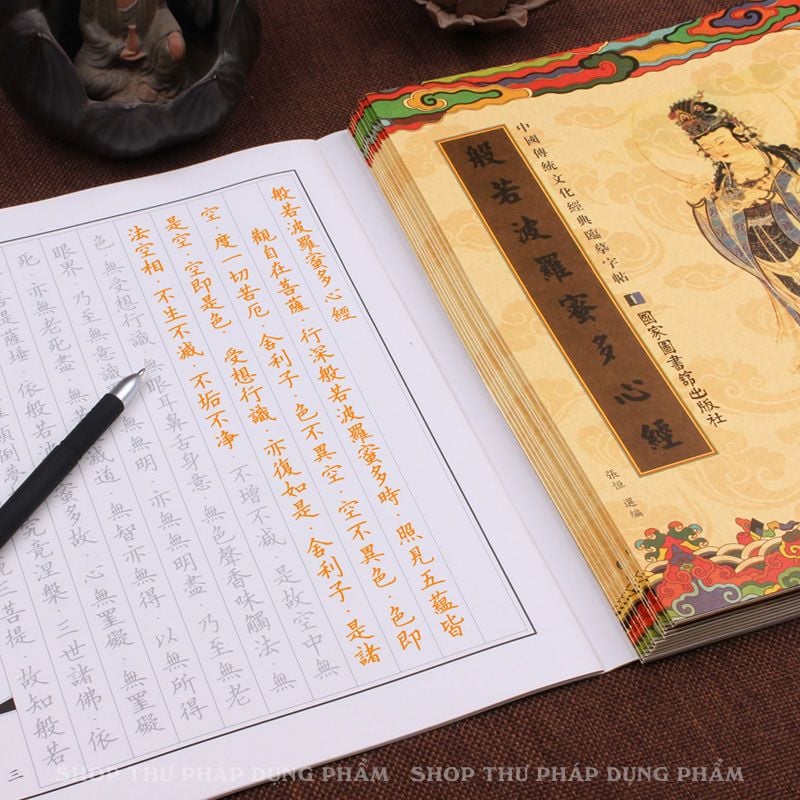 般若波羅蜜多心經
觀自在菩薩·行深般若波羅蜜多時·照見五蘊皆
空·度一切苦厄·舍利子·色不異空·空不異色·色即
是空·空即是色 受想行識·亦復如是·舍利子·是諸
法空相·不生不滅·不垢不净 不增不减 是故空中無
色 無受想行識 無眼耳鼻舌身意 無色聲香味觸法·無
眼界·乃至無意識 無無明·亦無無明盡·乃至無老
死·亦無老死盡 滅道·無智亦無得·以無所得
是薩埵·依般若波 蜜多故·心無罣礙 無罣礙
顛倒夢 究竟涅槃·三世諸佛·依
三菩提 故知般若
三
中國傳統文化經典臨摹字帖
般若波羅蜜多心經
國家圖書館出版社
張恒 選編
SHOP THƯ PHÁP DỤNG PHẨM SHOP THƯ PHÁP DỤNG PHẨM